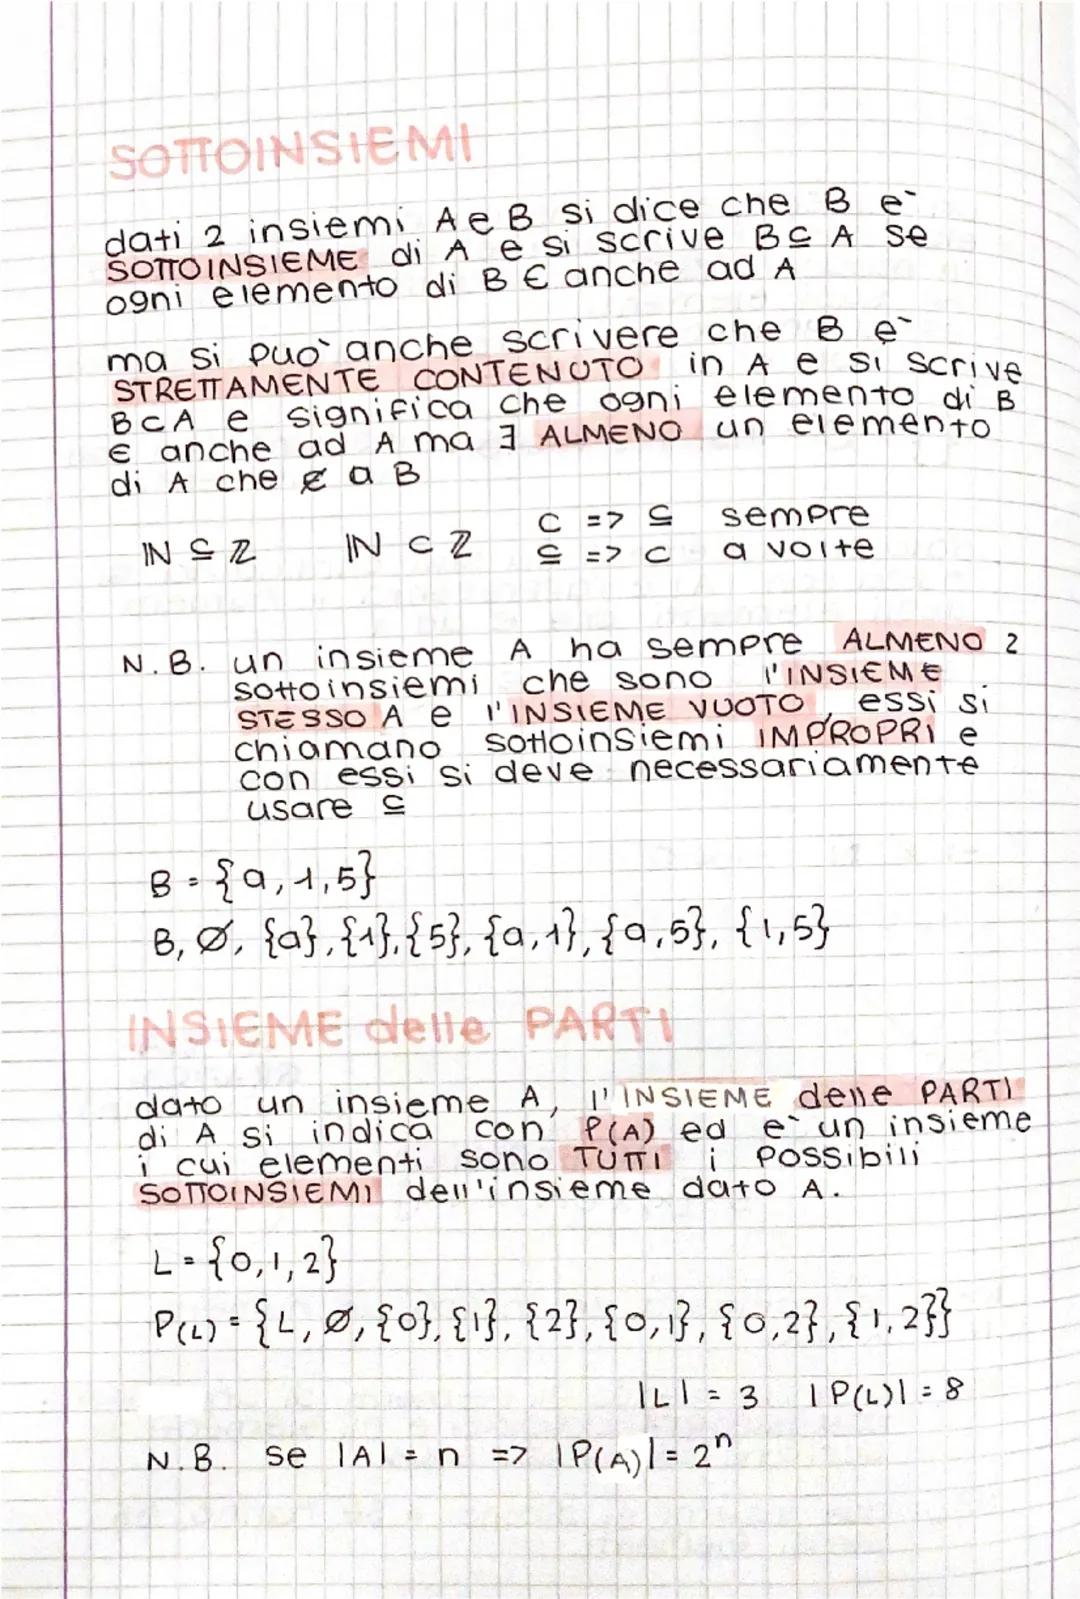 SOTTOINSIEMI
dati 2 insiemi A e B si dice che B e`
SOTTOINSIEME di A e si scrive B ⊆ A se
ogni elemento di B ∈ anche ad A
ma si puo` anche scrivere che B e`
STRETTAMENTE CONTENUTO in A e si scrive
B ⊂ A e significa che ogni elemento di B
∈ anche ad A ma ∃ ALMENO un elemento
di A che ∉ a B
ℕ ⊆ ℤ ℕ ⊂ ℤ ⊂ => ⊆ sempre
⊆ => ⊂ a volte
N.B. un insieme A ha sempre ALMENO 2
sottoinsiemi che sono l'INSIEME
STESSO A e l'INSIEME VUOTO, essi si
chiamano sottoinsiemi IMPROPRI e
con essi si deve necessariamente
usare ⊆
B = {a, 1, 5}
B, ∅, {a}, {1}, {5}, {a, 1}, {a, 5}, {1, 5}
INSIEME delle PARTI
dato un insieme A, l'INSIEME delle PARTI
di A si indica con P(A) ed e` un insieme
i cui elementi sono TUTTI i POSSibili
SOTTOINSIEMI dell'insieme dato A.
L = {0, 1, 2}
P(L) = {L, ∅, {0}, {1}, {2}, {0, 1}, {0, 2}, {1, 2}}
|L| = 3 |P(L)| = 8
N.B. se |A| = n => |P(A)| = 2ⁿ